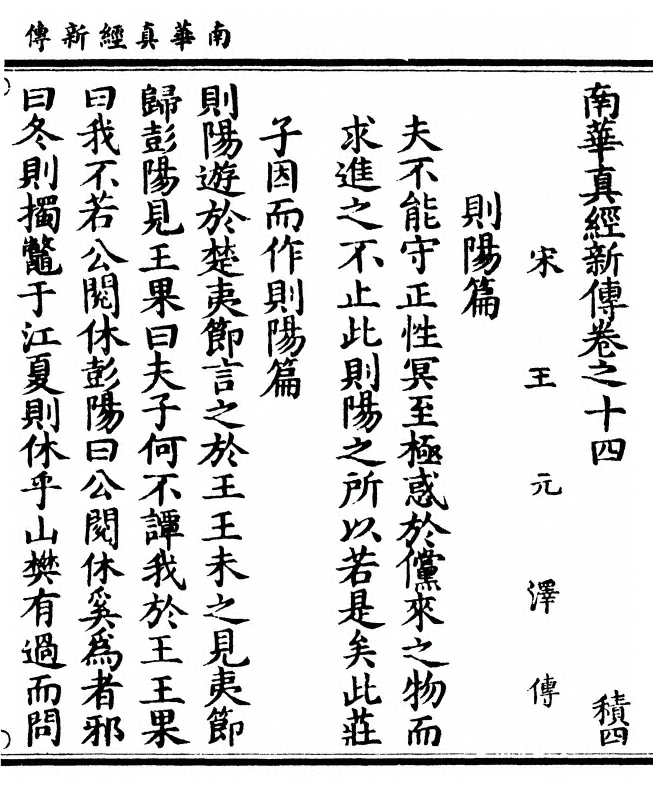 南華真經新傳
南華真經新傳卷之十四
積四
宋王元澤傳
則陽篇
夫不能守正性冥至極惑於儻來之物而
求進之不止此則陽之所以若是矣此莊
子因而作則陽篇
則陽遊於楚夷節言之於王王未之見夷節
歸彭陽見王果曰夫子何不譚我於王王果
曰我不若公閱休彭陽曰公閱休奚為者邪
曰冬則擉鼈于江夏則休乎山樊有過而問